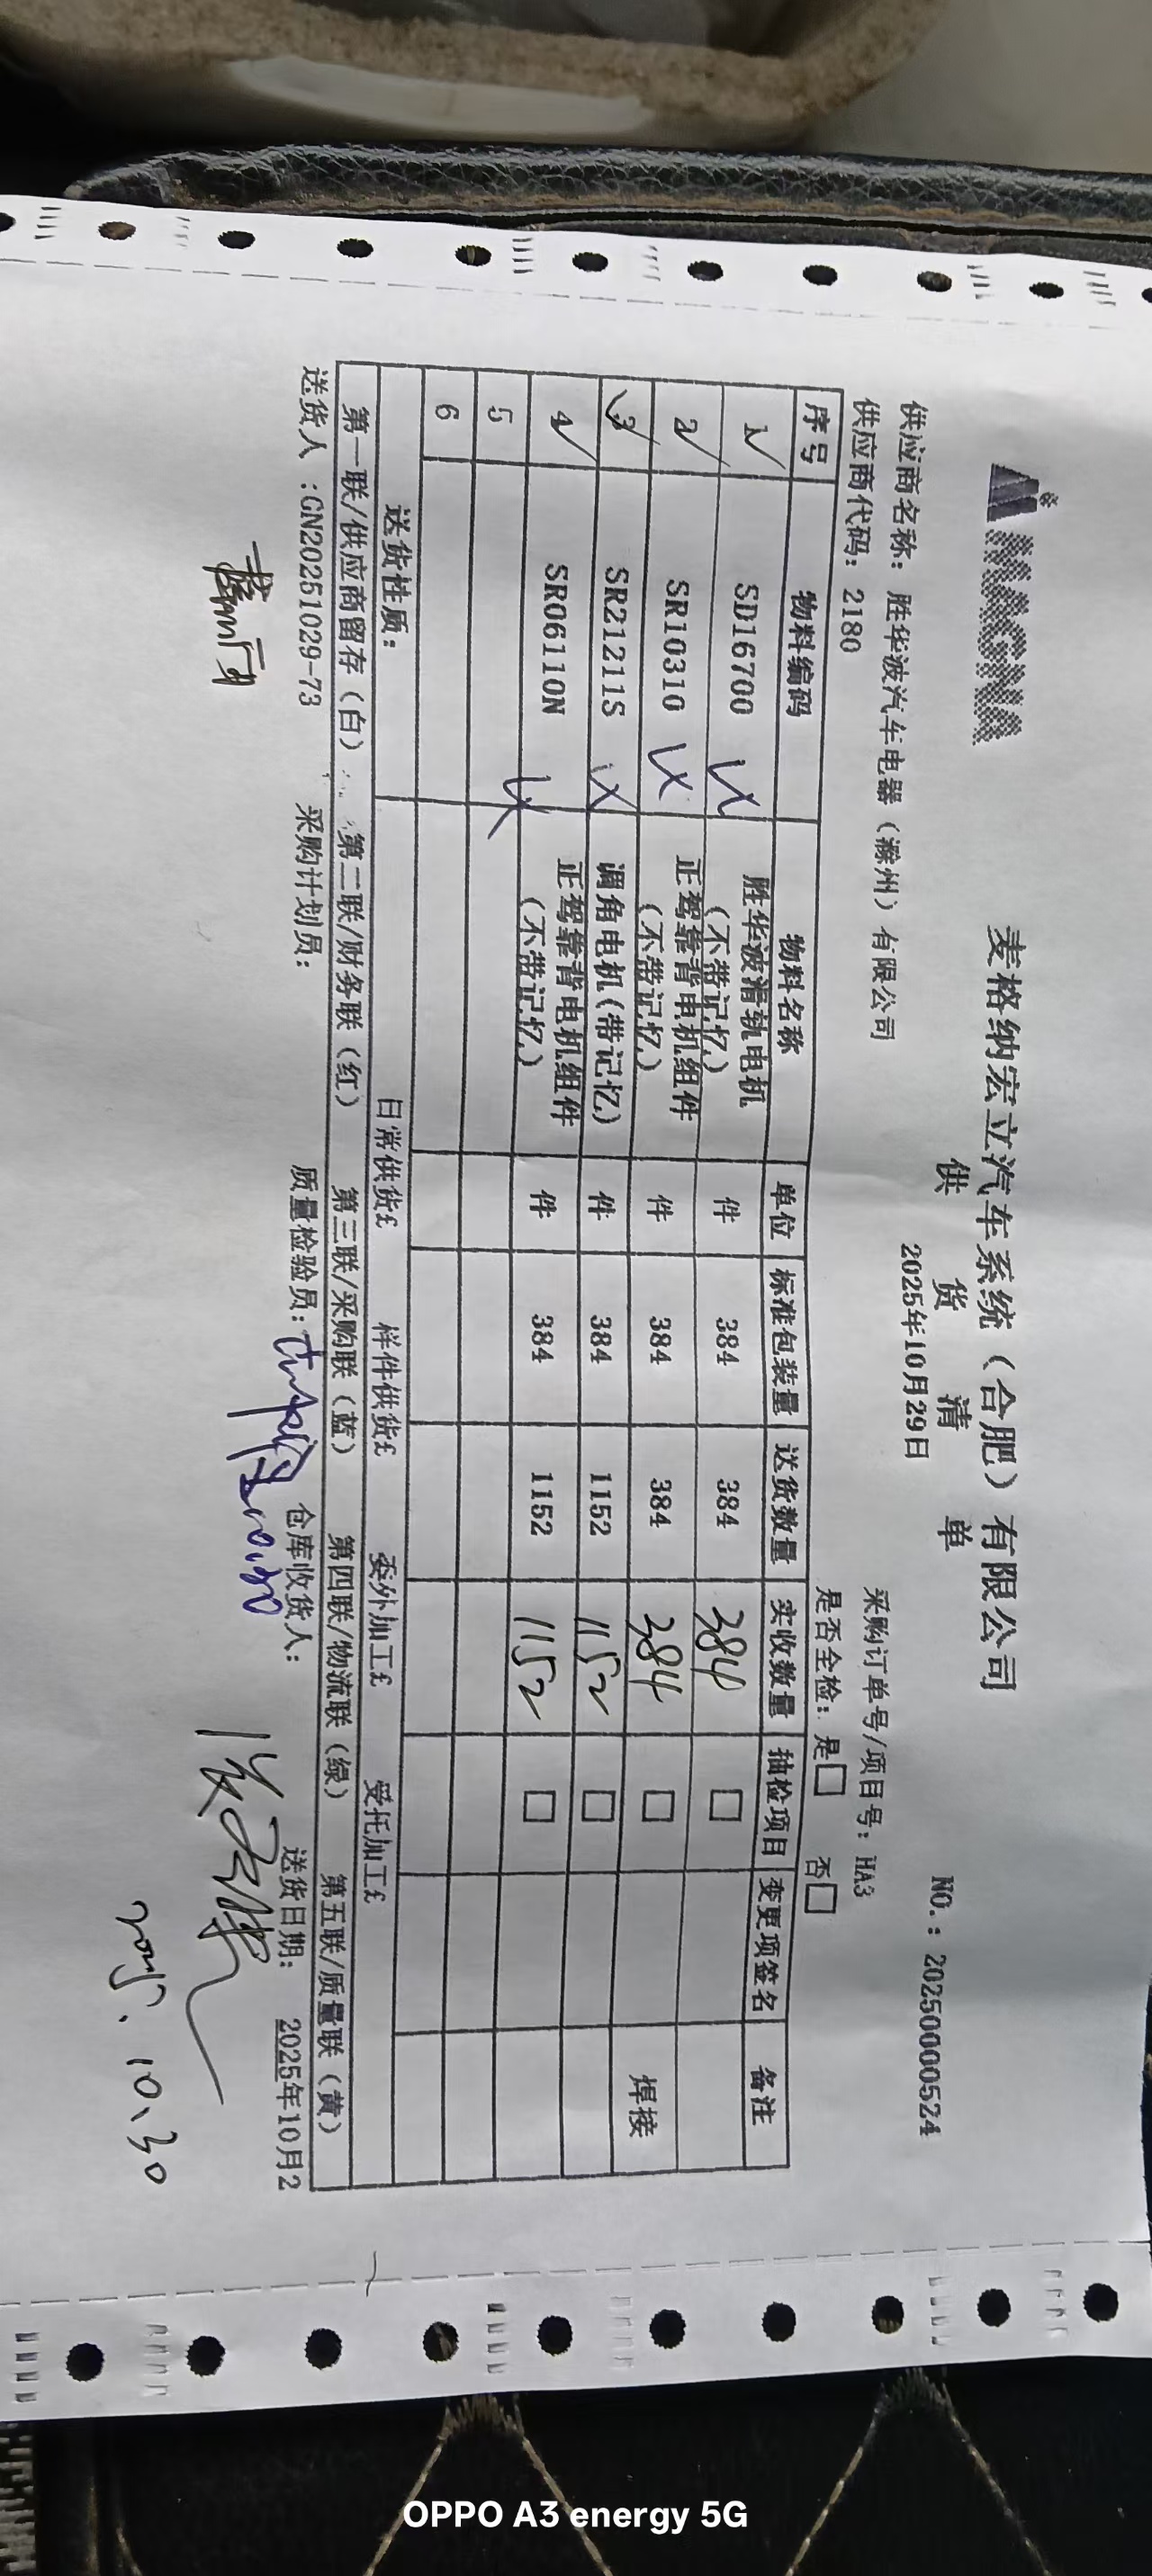 MAGNA
麦格纳宏立汽车系统（合肥）有限公司
供 货 清 单
NO.：20250000524
供应商名称：胜华波汽车电器（滁州）有限公司
2025年10月29日
采购订单号/项目号：HA3
供应商代码：2180
是否全检：是□ 否□
序号 物料编码 物料名称 单位 标准包装量 送货数量 实收数量 抽检项目 变更项签名 备注
1 SD16700 胜华波滑轨电机（不带记忆） 件 384 384 384 □
2 SR10310 正驾靠背电机组件（不带记忆） 件 384 384 384 □ 焊接
3 SR21211S 调角电机(带记忆) 件 384 1152 1152 □
4 SR06110N 正驾靠背电机组件（不带记忆） 件 384 1152 1152 □
5
6
送货性质： 日常供货£ 样件供货£ 委外加工£ 受托加工£
第一联/供应商留存（白） 第二联/财务联（红） 第三联/采购联（蓝） 第四联/物流联（绿） 第五联/质量联（黄）
送货人：GN20251029-73 采购计划员： 质量检验员： 仓库收货人： 送货日期： 2025年10月2
2025.10.30
OPPO A3 energy 5G